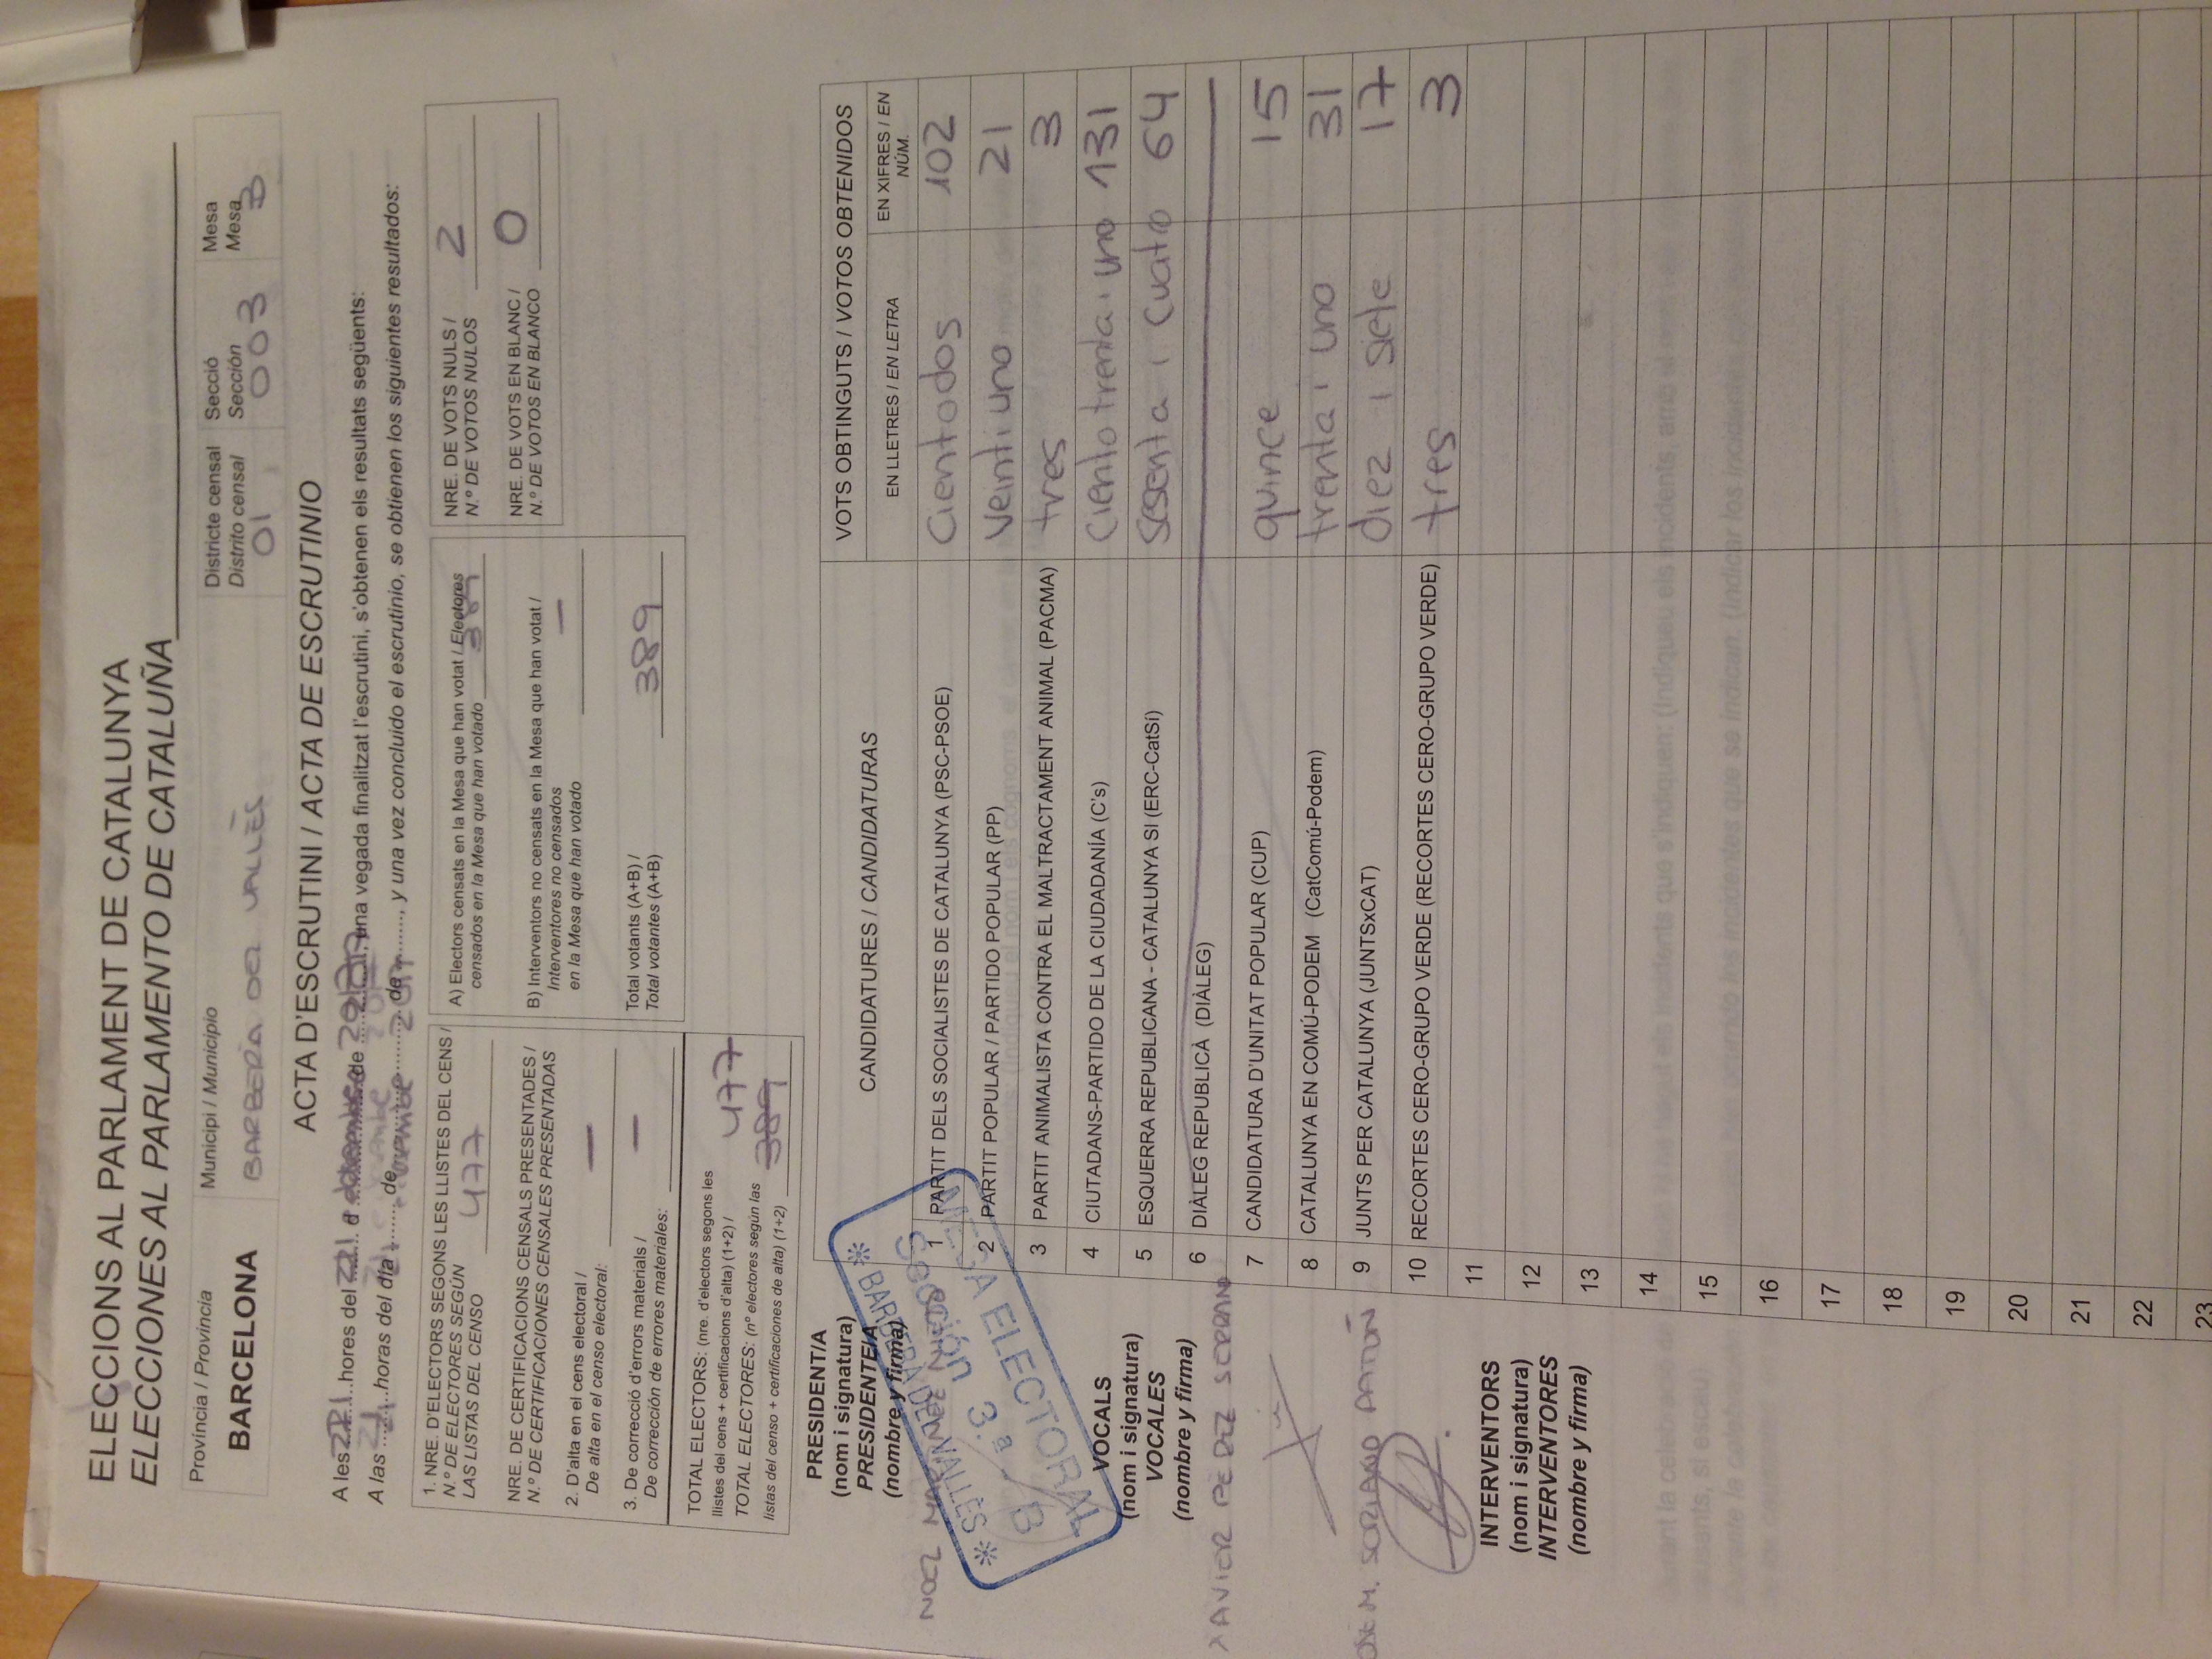 ELECCIONS AL PARLAMENT DE CATALUNYA
ELECCIONES AL PARLAMENTO DE CATALUÑA
Província / Provincia
BARCELONA
Municipi / Municipio
BARBERÀ DEL VALLÈS
Districte censal
Distrito censal
01
Secció
Sección
003
Mesa
Mesa
B
ACTA D'ESCRUTINI / ACTA DE ESCRUTINIO
A les 21 hores del 21 d de 2017, una vegada finalitzat l'escrutini, s'obtenen els resultats següents:
A las 21 horas del día 21 de de 2017, y una vez concluido el escrutinio, se obtienen los siguientes resultados:
1. NRE. D'ELECTORS SEGONS LES LLISTES DEL CENS /
N.º DE ELECTORES SEGÚN
LAS LISTAS DEL CENSO 477
NRE. DE CERTIFICACIONS CENSALS PRESENTADES /
N.º DE CERTIFICACIONES CENSALES PRESENTADAS
2. D'alta en el cens electoral /
De alta en el censo electoral: —
3. De correcció d'errors materials /
De corrección de errores materiales: —
TOTAL ELECTORS: (nre. d'electors segons les
llistes del cens + certificacions d'alta) (1+2) / 477
TOTAL ELECTORES: (nº electores según las
listas del censo + certificaciones de alta) (1+2) 389
A) Electors censats en la Mesa que han votat / Electores
censados en la Mesa que han votado 389
B) Interventors no censats en la Mesa que han votat /
Interventores no censados
en la Mesa que han votado —
Total votants (A+B) /
Total votantes (A+B) 389
NRE. DE VOTS NULS / 2
N.º DE VOTOS NULOS
NRE. DE VOTS EN BLANC / 0
N.º DE VOTOS EN BLANCO
PRESIDENT/A
(nom i signatura)
PRESIDENTE/A
(nombre y firma)
NOEL MARTINEZ NIETO
MESA ELECTORAL
Sección 3.ª - B
* BARBERA DEL VALLÈS *
VOCALS
(nom i signatura)
VOCALES
(nombre y firma)
XAVIER PEREZ SERRANO
SORIANO
INTERVENTORS
(nom i signatura)
INTERVENTORES
(nombre y firma)
CANDIDATURES / CANDIDATURAS
VOTS OBTINGUTS / VOTOS OBTENIDOS
EN LLETRES / EN LETRA
EN XIFRES / EN
NÚM.
1 PARTIT DELS SOCIALISTES DE CATALUNYA (PSC-PSOE) Cientodos 102
2 PARTIT POPULAR / PARTIDO POPULAR (PP) Veintiuno 21
3 PARTIT ANIMALISTA CONTRA EL MALTRACTAMENT ANIMAL (PACMA) tres 3
4 CIUTADANS-PARTIDO DE LA CIUDADANÍA (C's) Ciento trenta i uno 131
5 ESQUERRA REPUBLICANA - CATALUNYA SI (ERC-CatSí) sesenta i cuatro 64
6 DIÀLEG REPUBLICÀ (DIÀLEG)
7 CANDIDATURA D'UNITAT POPULAR (CUP) quince 15
8 CATALUNYA EN COMÚ-PODEM (CatComú-Podem) trenta i uno 31
9 JUNTS PER CATALUNYA (JUNTSxCAT) diez i siete 17
10 RECORTES CERO-GRUPO VERDE (RECORTES CERO-GRUPO VERDE) tres 3
11
12
13
14
15
16
17
18
19
20
21
22
23